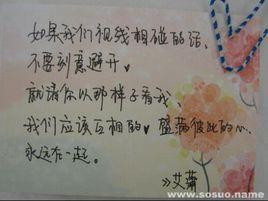 如果我们视线相碰的话.
不要刻意避开♥
就请你以那样子看我.
我们应该互相的♥ 盛藏彼此的心.
永远在一起。
》艾蒲
www.sosuo.name